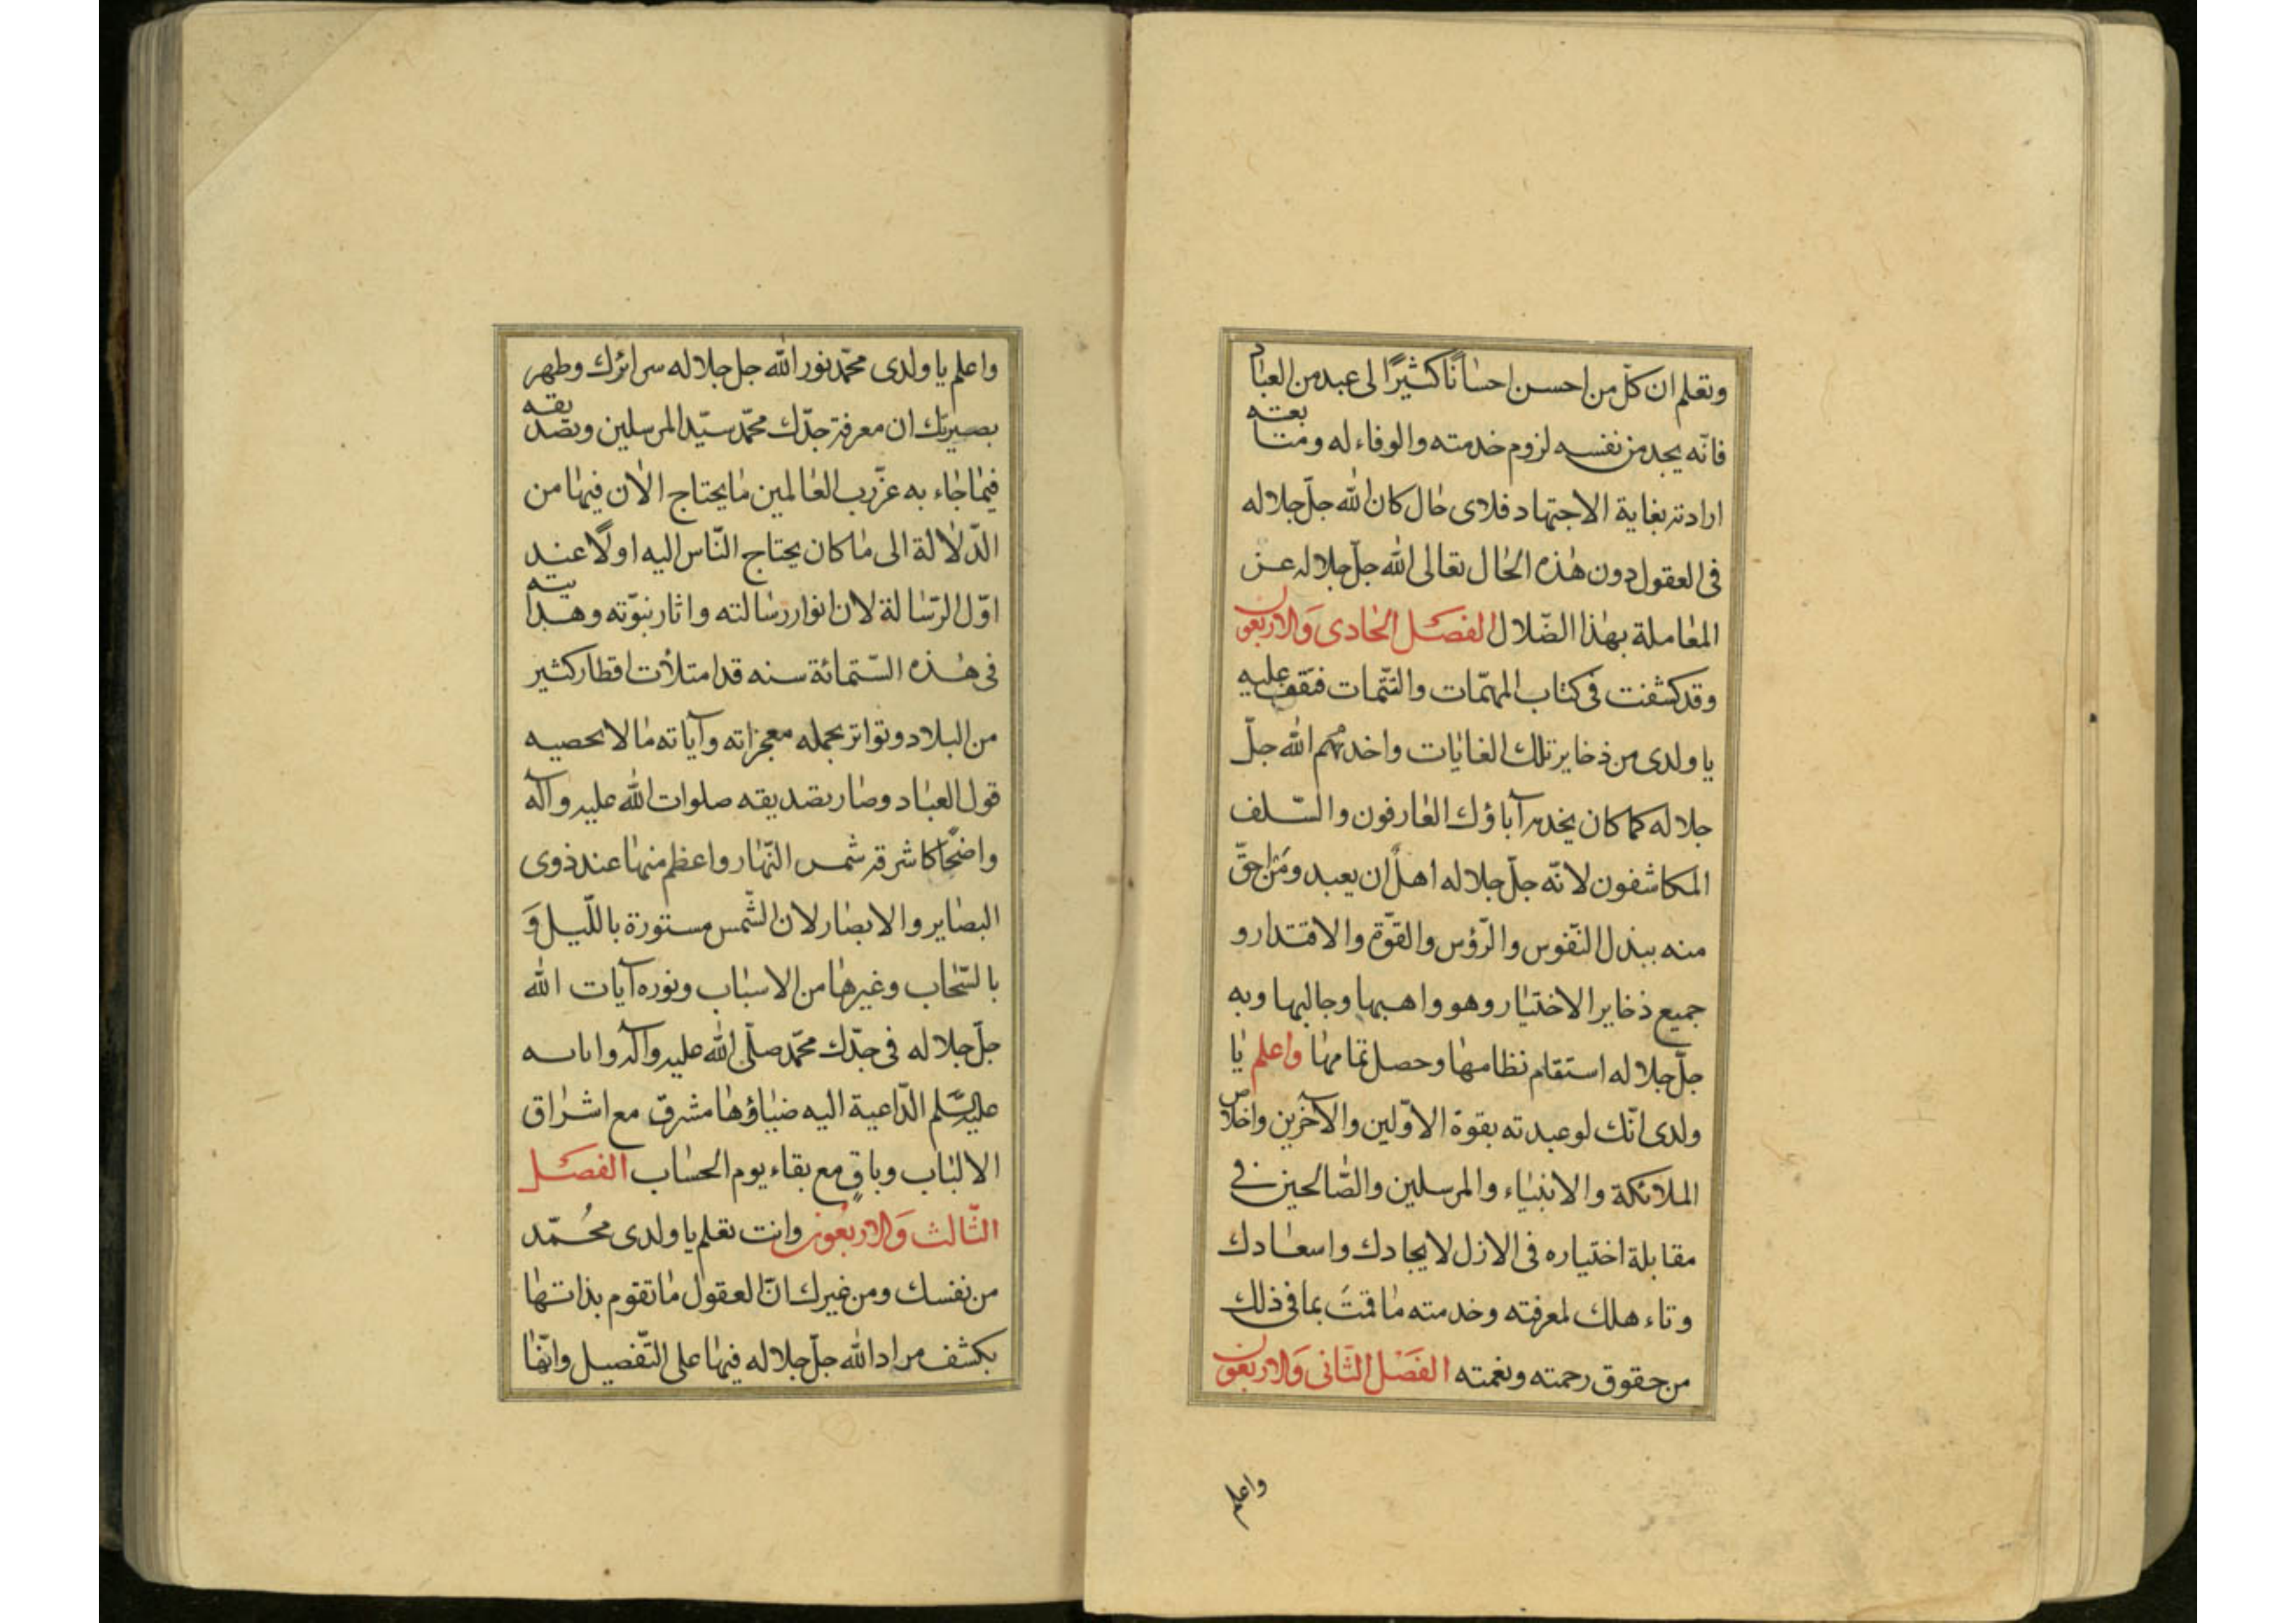 وتعلم ان كلّ من احسن احسانًا كثيرًا لى عبد من العباد
فانّه يجد من نفسه لزوم خدمته والوفاء له ومتابعته
ارادته بغاية الاجتهاد فلاى حال كان الله جلّ جلاله
فى العقول دون هذه الحال تعالى الله جلّ جلاله عن
المعاملة بهذا الضّلال الفصل الحادى والاربعون
وقد كشفت فى كتاب المهمّات والتتمّات فقف عليه
يا ولدى من ذخاير تلك الغايات واخدم الله جلّ
جلاله كما كان يخدمه آباؤك العارفون والسّلف
المكاشفون لانّه جلّ جلاله اهل ان يعبد ومن احقّ
منه ببذل النّفوس والرّؤس والقوّة والاقتدار و
جميع ذخاير الاختيار وهو واهبها وجالبها وبه
جلّ جلاله استقام نظامها وحصل تمامها واعلم يا
ولدى انّك لو عبدته بقوة الاوّلين والآخرين واخلاص
الملائكة والانبياء والمرسلين والصّالحين فى
مقابلة اختياره فى الازل لايجادك واسعادك
وتاءهلك لمعرفته وخدمته ما قمتَ بما فى ذلك
من حقوق رحمته ونعمته الفصل الثّانى والاربعون
واعلم
واعلم يا ولدى محمّد نور الله جل جلاله سرائرك وطهر
بصيرتك ان معرفة جدّك محمّد سيّد المرسلين وتصديقه
فيما جاء به عن ربّ العالمين ما يحتاج الان فيها من
الدّلالة الى ما كان يحتاج النّاس اليه اولًا عند
اوّل الرّسالة لان انوار رسالته واثار نبوّته وهدايته
فى هذه السّتمائة سنه قد امتلأت اقطار كثير
من البلاد وتواتر بجمله معجزاته وآياته ما لا يحصيه
قول العباد وصار بتصديقه صلوات الله عليه وآله
واضحًا كاشرقة شمس النّهار واعظم منها عند ذوى
البصاير والابصار لان الشّمس مستورة باللّيل وَ
بالسّحاب وغيرها من الاسباب ونوره آيات الله
جلّ جلاله فى جدّك محمّد صلّى الله عليه وآله واىاىه
عليه السّلم الدّاعية اليه ضياؤها مشرق مع اشراق
الالباب وباقٍ مع بقاء يوم الحساب الفصل
الثّالث والاربعون وانت تعلم يا ولدى محُمّد
من نفسك ومن غيرك انّ العقول ما تقوم بذاتها
بكشف مراد الله جلّ جلاله فيها على التّفصيل وانّما